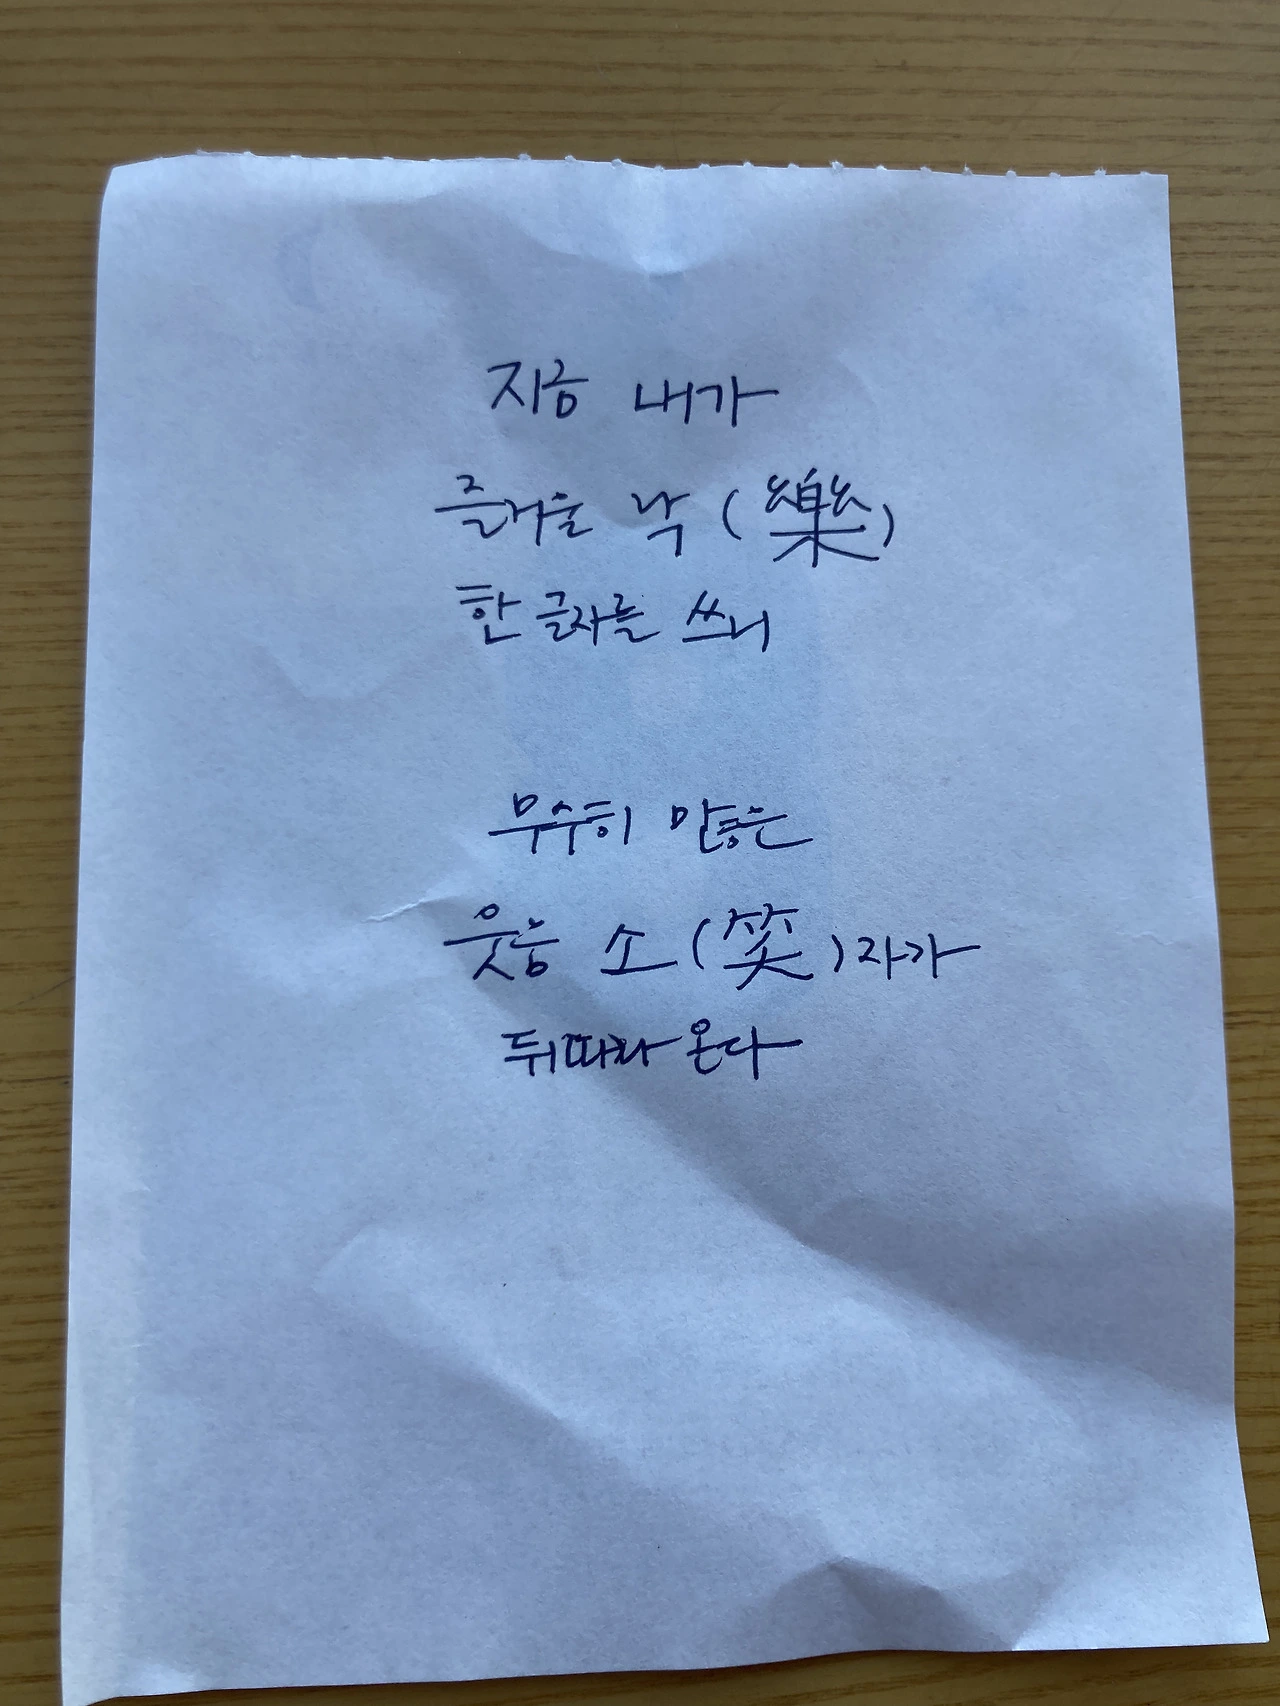 지금 내가
즐거울 낙 (樂)
한 글자를 쓰니
무수히 많은
웃음 소 (笑) 자가
뒤따라 온다